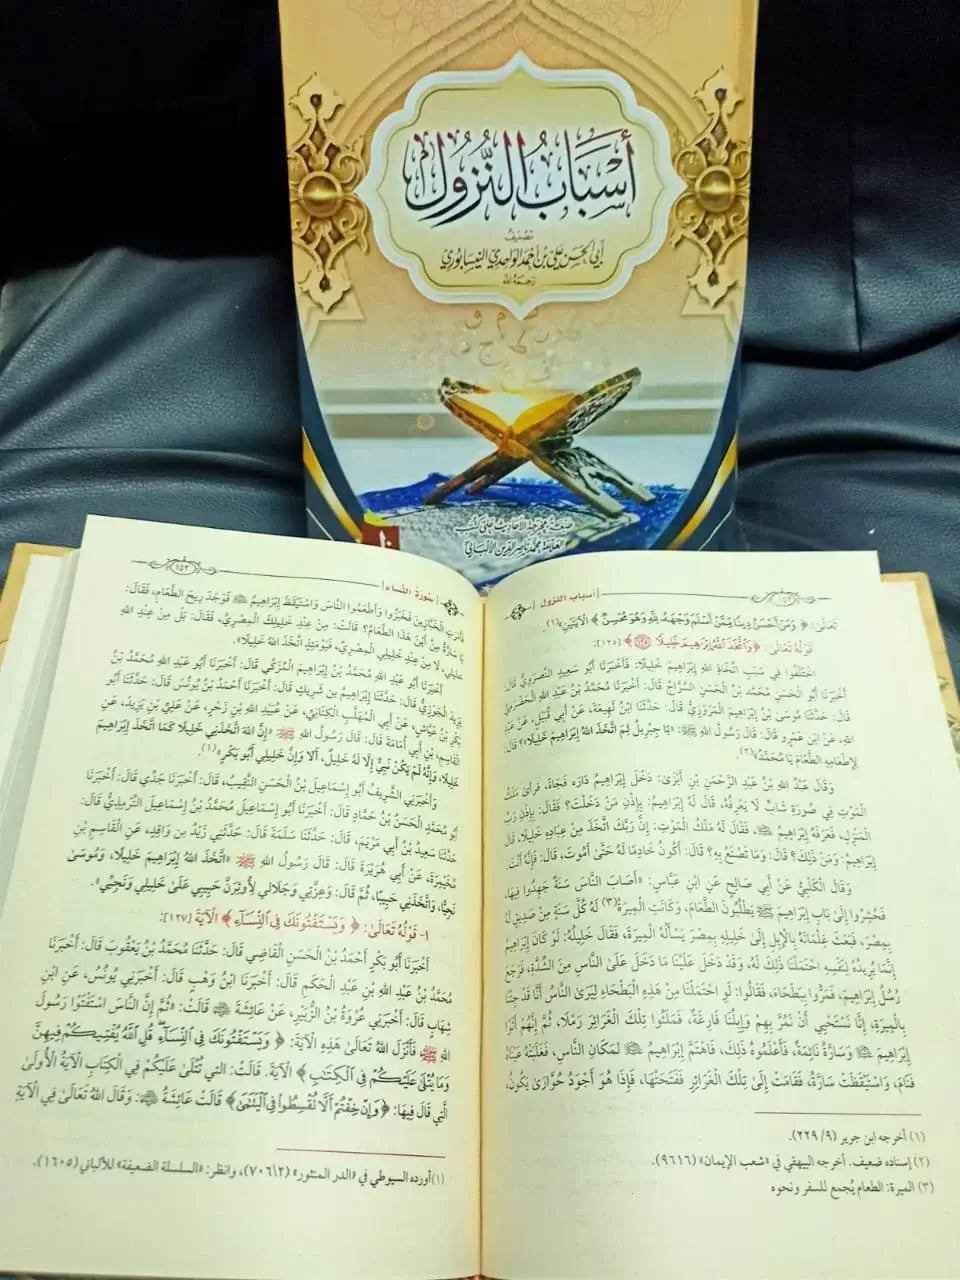 أَسْبَابُ النُّزُول
تَصْنِيفُ
أَبِي الحَسَنِ عَلِيِّ بْنِ أَحْمَدَ الوَاحِدِيِّ النَّيْسَابُورِيِّ
رَحِمَهُ اللهُ
العلامة محمد ناصر الدين الألباني
أسباب النزول
تَعَالَى: ﴿ وَمَنْ أَحْسَنُ دِينًا مِمَّنْ أَسْلَمَ وَجْهَهُ لِلَّهِ وَهُوَ مُحْسِنٌ ﴾ الآيَتَيْنِ»(١).
قَوْلُهُ تَعَالَى: ﴿ وَاتَّخَذَ اللَّهُ إِبْرَاهِيمَ خَلِيلًا ﴾ [١٢٥]:
اخْتَلَفُوا فِي سَبَبِ اتِّخَاذِ اللهِ إِبْرَاهِيمَ خَلِيلًا: فَأَخْبَرَنَا أَبُو سَعِيدٍ النَّصْرَوِيُّ قَالَ:
أَخْبَرَنَا أَبُو الحَسَنِ مُحَمَّدُ بْنُ الحَسَنِ السَّرَّاجُ قَالَ: أَخْبَرَنَا مُحَمَّدُ بْنُ عَبْدِ اللهِ الحَضْرَمِيُّ
قَالَ: حَدَّثَنَا مُوسَى بْنُ إِبْرَاهِيمَ المَرْوَزِيُّ قَالَ: حَدَّثَنَا ابْنُ لَهِيعَةَ، عَنْ أَبِي قُبَيْلٍ، عَنْ عَبْدِ
اللهِ، عَنِ ابْنِ عَمْرٍو قَالَ: قَالَ رَسُولُ اللهِ ﷺ: «يَا جِبْرِيلُ لِمَ اتَّخَذَ اللهُ إِبْرَاهِيمَ خَلِيلًا»؟ قَالَ:
لِإِطْعَامِهِ الطَّعَامَ يَا مُحَمَّدُ»(٢).
وَقَالَ عَبْدُ اللهِ بْنُ عَبْدِ الرَّحْمَنِ بْنِ أَبْزَى: دَخَلَ إِبْرَاهِيمُ دَارَهُ فَجْأَةً، فَرَأَى مَلَكَ
المَوْتِ فِي صُورَةِ شَابٍّ لَا يَعْرِفُهُ، قَالَ لَهُ إِبْرَاهِيمُ: بِإِذْنِ مَنْ دَخَلْتَ؟ فَقَالَ: بِإِذْنِ رَبِّ
المَنْزِلِ، فَعَرَفَهُ إِبْرَاهِيمُ ﷺ، فَقَالَ لَهُ مَلَكُ المَوْتِ: إِنَّ رَبَّكَ اتَّخَذَ مِنْ عِبَادِهِ خَلِيلًا، قَالَ
إِبْرَاهِيمُ: وَمَنْ ذَلِكَ؟ قَالَ: وَمَا تَصْنَعُ بِهِ؟ قَالَ: أَكُونُ خَادِمًا لَهُ حَتَّى أَمُوتَ، قَالَ: فَإِنَّهُ أَنْتَ.
وَقَالَ الكَلْبِيُّ عَنْ أَبِي صَالِحٍ عَنِ ابْنِ عَبَّاسٍ: «أَصَابَ النَّاسَ سَنَةٌ جَهِدُوا فِيهَا،
فَحُشِرُوا إِلَى بَابِ إِبْرَاهِيمَ ﷺ يَطْلُبُونَ الطَّعَامَ، وَكَانَتِ المِيرَةُ(٣) لَهُ كُلَّ سَنَةٍ مِنْ صَدِيقٍ لَهُ
بِمِصْرَ، فَبَعَثَ غِلْمَانَهُ بِالْإِبِلِ إِلَى خَلِيلِهِ بِمِصْرَ يَسْأَلُهُ المِيرَةَ، فَقَالَ خَلِيلُهُ: لَوْ كَانَ إِبْرَاهِيمُ
إِنَّمَا يُرِيدُهُ لِنَفْسِهِ احْتَمَلْنَا ذَلِكَ لَهُ، وَقَدْ دَخَلَ عَلَيْنَا مَا دَخَلَ عَلَى النَّاسِ مِنَ الشِّدَّةِ، فَرَجَعَ
رُسُلُ إِبْرَاهِيمَ، فَمَرُّوا بِبَطْحَاءَ، فَقَالُوا: لَوِ احْتَمَلْنَا مِنْ هَذِهِ البَطْحَاءِ لِيَرَى النَّاسُ أَنَّا قَدْ جِئْنَا
بِالْمِيرَةِ، إِنَّا نَسْتَحْيِي أَنْ نَمُرَّ بِهِمْ وَإِبِلُنَا فَارِغَةٌ، فَمَلَئُوا تِلْكَ الغَرَائِرَ رَمْلًا، ثُمَّ إِنَّهُمْ أَتَوْا
إِبْرَاهِيمَ ﷺ وَسَارَّةُ نَائِمَةٌ، فَأَعْلَمُوهُ ذَلِكَ، فَاهْتَمَّ إِبْرَاهِيمُ ﷺ لِمَكَانِ النَّاسِ، فَغَلَبَتْهُ عَيْنَاهُ
فَنَامَ، وَاسْتَيْقَظَتْ سَارَّةُ، فَقَامَتْ إِلَى تِلْكَ الغَرَائِرِ فَفَتَحَتْهَا، فَإِذَا هُوَ أَجْوَدُ حُوَّارَى يَكُونُ،
(١) أخرجه ابن جرير (٩/ ٢٢٩).
(٢) إسناده ضعيف. أخرجه البيهقي في «شعب الإيمان» (٩٦١٦).
(٣) الميرة: الطعام يُجمع للسفر ونحوه
سُورَةُ النِّسَاء
١٥٣
فَأَمَرَتِ الخَبَّازِينَ فَخَبَزُوا وَأَطْعَمُوا النَّاسَ وَاسْتَيْقَظَ إِبْرَاهِيمُ ﷺ فَوَجَدَ رِيحَ الطَّعَامِ، فَقَالَ:
يَا سَارَّةُ مِنْ أَيْنَ هَذَا الطَّعَامُ؟ قَالَتْ: مِنْ عِنْدِ خَلِيلِكَ المِصْرِيِّ، فَقَالَ: بَلْ مِنْ عِنْدِ اللهِ
خَلِيلِي، لَا مِنْ عِنْدِ خَلِيلِي المِصْرِيِّ، فَيَوْمَئِذٍ اتَّخَذَ اللهُ خَلِيلًا».
أَخْبَرَنَا أَبُو عَبْدِ اللهِ مُحَمَّدُ بْنُ إِبْرَاهِيمَ المُزَكِّي قَالَ: أَخْبَرَنَا أَبُو عَبْدِ اللهِ مُحَمَّدُ بْنُ
يَزِيدَ الجَوْزِيُّ قَالَ: حَدَّثَنَا إِبْرَاهِيمُ بْنُ شَرِيكٍ قَالَ: أَخْبَرَنَا أَحْمَدُ بْنُ يُونُسَ قَالَ: حَدَّثَنَا أَبُو
بَكْرِ بْنُ عَيَّاشٍ، عَنْ أَبِي المُهَلَّبِ الكِنَانِيِّ، عَنْ عُبَيْدِ اللهِ بْنِ زَحْرٍ، عَنْ عَلِيِّ بْنِ يَزِيدَ، عَنِ
القَاسِمِ، عَنْ أَبِي أُمَامَةَ قَالَ: قَالَ رَسُولُ اللهِ ﷺ: «إِنَّ اللهَ اتَّخَذَنِي خَلِيلًا كَمَا اتَّخَذَ إِبْرَاهِيمَ
خَلِيلًا، فَإِنَّهُ لَمْ يَكُنْ نَبِيٌّ إِلَّا لَهُ خَلِيلٌ، أَلَا وَإِنَّ خَلِيلِي أَبُو بَكْرٍ»(١).
وَأَخْبَرَنِي الشَّرِيفُ أَبُو إِسْمَاعِيلَ بْنُ الحَسَنِ النَّقِيبُ، قَالَ: أَخْبَرَنَا جَدِّي قَالَ: أَخْبَرَنَا
أَبُو مُحَمَّدٍ الحَسَنُ بْنُ حَمَّادٍ قَالَ: أَخْبَرَنَا أَبُو إِسْمَاعِيلَ مُحَمَّدُ بْنُ إِسْمَاعِيلَ التِّرْمِذِيُّ قَالَ:
حَدَّثَنَا سَعِيدُ بْنُ أَبِي مَرْيَمَ، قَالَ: حَدَّثَنَا سَلَمَةُ قَالَ: حَدَّثَنِي زَيْدُ بْنُ وَاقِدٍ، عَنِ القَاسِمِ بْنِ
مُخَيْمِرَةَ، عَنْ أَبِي هُرَيْرَةَ قَالَ: قَالَ رَسُولُ اللهِ ﷺ «اتَّخَذَ اللهُ إِبْرَاهِيمَ خَلِيلًا، وَمُوسَى
نَجِيًّا، وَاتَّخَذَنِي حَبِيبًا، ثُمَّ قَالَ: وَعِزَّتِي وَجَلَالِي لَأُوثِرَنَّ حَبِيبِي عَلَى خَلِيلِي وَنَجِيِّي».
١- قَوْلُهُ تَعَالَى: ﴿ وَيَسْتَفْتُونَكَ فِي النِّسَاءِ ﴾ الآيَةَ [١٢٧]:
أَخْبَرَنَا أَبُو بَكْرٍ أَحْمَدُ بْنُ الحَسَنِ القَاضِي قَالَ: حَدَّثَنَا مُحَمَّدُ بْنُ يَعْقُوبَ قَالَ: أَخْبَرَنَا
مُحَمَّدُ بْنُ عَبْدِ اللهِ بْنِ عَبْدِ الحَكَمِ قَالَ: أَخْبَرَنَا ابْنُ وَهْبٍ قَالَ: أَخْبَرَنِي يُونُسُ، عَنِ ابْنِ
شِهَابٍ قَالَ: أَخْبَرَنِي عُرْوَةُ بْنُ الزُّبَيْرِ، عَنْ عَائِشَةَ قَالَتْ: «ثُمَّ إِنَّ النَّاسَ اسْتَفْتَوْا رَسُولَ
اللهِ ﷺ فَأَنْزَلَ اللهُ تَعَالَى هَذِهِ الآيَةَ: ﴿ وَيَسْتَفْتُونَكَ فِي النِّسَاءِ قُلِ اللَّهُ يُفْتِيكُمْ فِيهِنَّ
وَمَا يُتْلَى عَلَيْكُمْ فِي الْكِتَابِ ﴾ الآيَةَ. قَالَتْ: الَّتِي تُتْلَى عَلَيْكُمْ فِي الكِتَابِ الآيَةُ الأُولَى
الَّتِي قَالَ فِيهَا: ﴿وَإِنْ خِفْتُمْ أَلَّا تُقْسِطُوا فِي الْيَتَامَى﴾ قَالَتْ عَائِشَةُ: وَقَالَ اللهُ تَعَالَى فِي الآيَةِ
(١) أورده السيوطي في «الدر المنثور» (٢/ ٧٠٦)، وانظر: «السلسلة الضعيفة» للألباني (١٦٠٥).